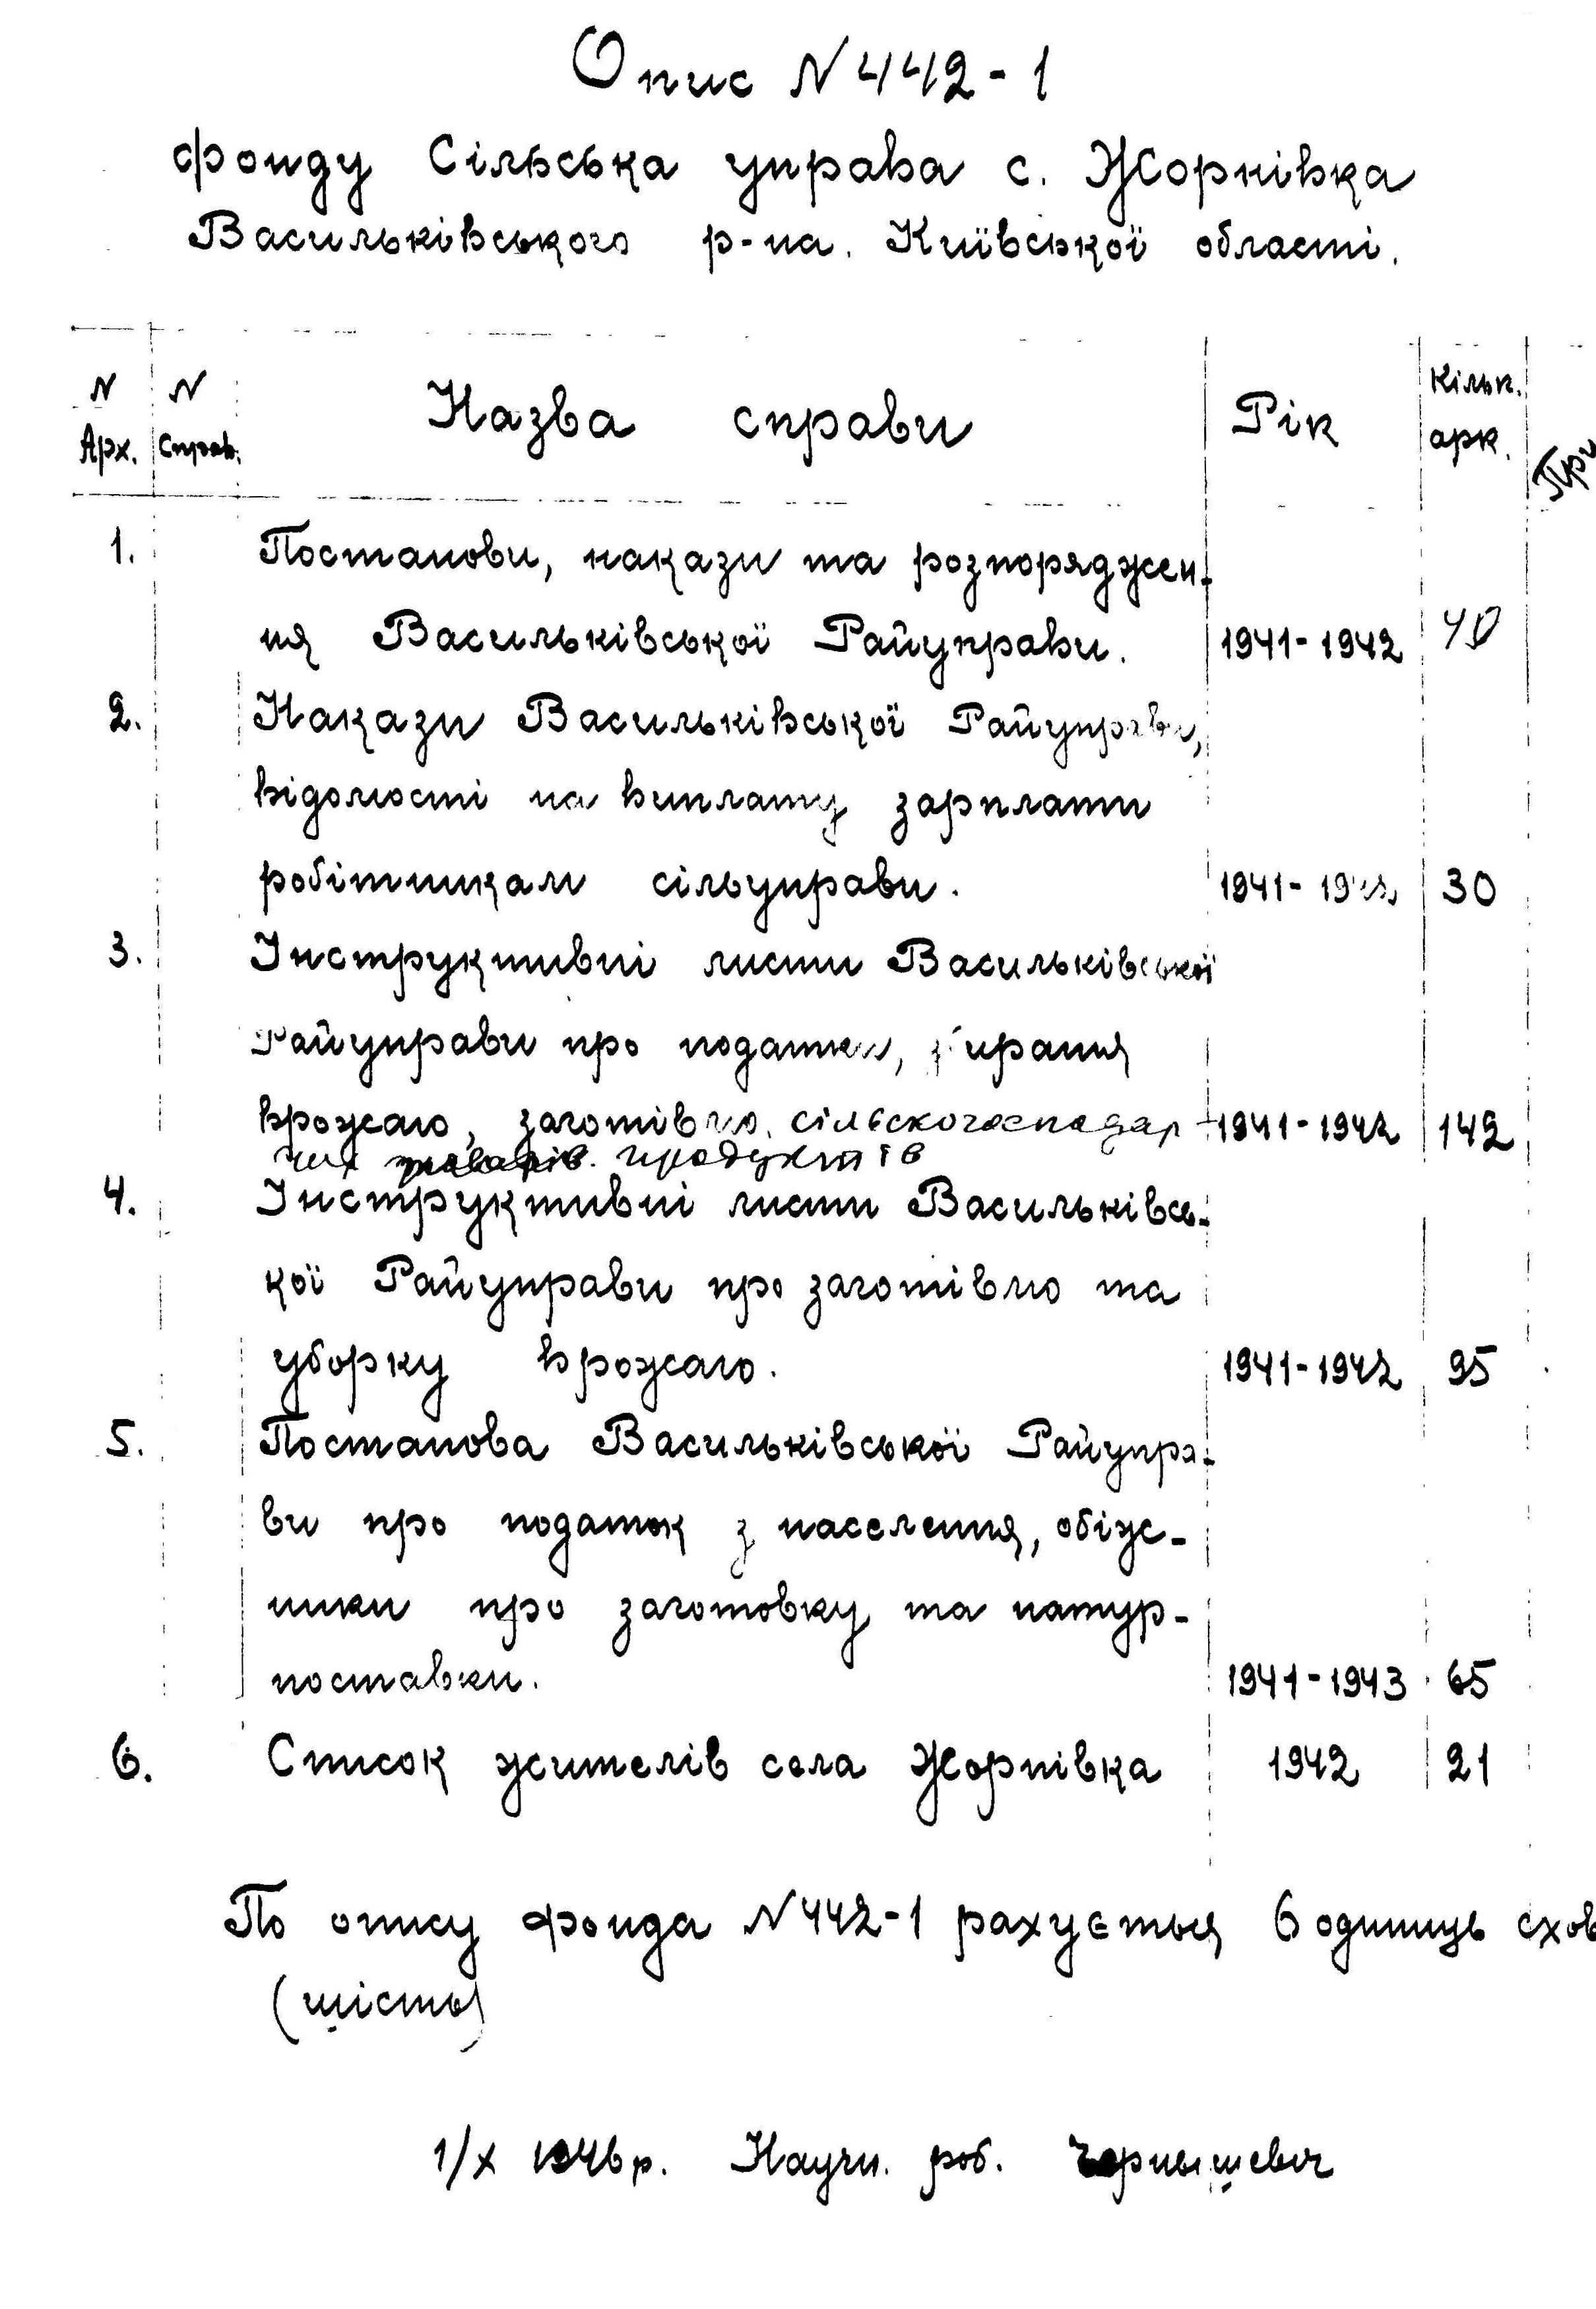 Опис N 442-1
фонду Сільська управа с. Жорнівка
Васильківського р-на. Київської області.
N Арх. N Справ. Назва справи Рік Кільк. арк. При
1. Постанови, накази та розпоряджен-
ня Васильківської Райуправи. 1941-1942 40
2. Накази Васильківської Райуправи,
відомості на виплату зарплати
робітникам сільуправи. 1941-1942 30
3. Інструктивні листи Васильківської
Райуправи про податки, збирання
врожаю, заготівлю сільскогосподар 1941-1942 142
них продуктів
4. Інструктивні листи Васильківсь-
кої Райуправи про заготівлю та
уборку врожаю. 1941-1942 95
5. Постанова Васильківської Райупра-
ви про податок з населення, обіж-
ники про заготовку та натур-
поставки. 1941-1943 65
6. Список жителів села Жорнівка 1942 21
По опису фонда N 442-1 рахується 6 одиниць схов
(шість)
1/X 1946 р. Научн. роб. Чернышевич